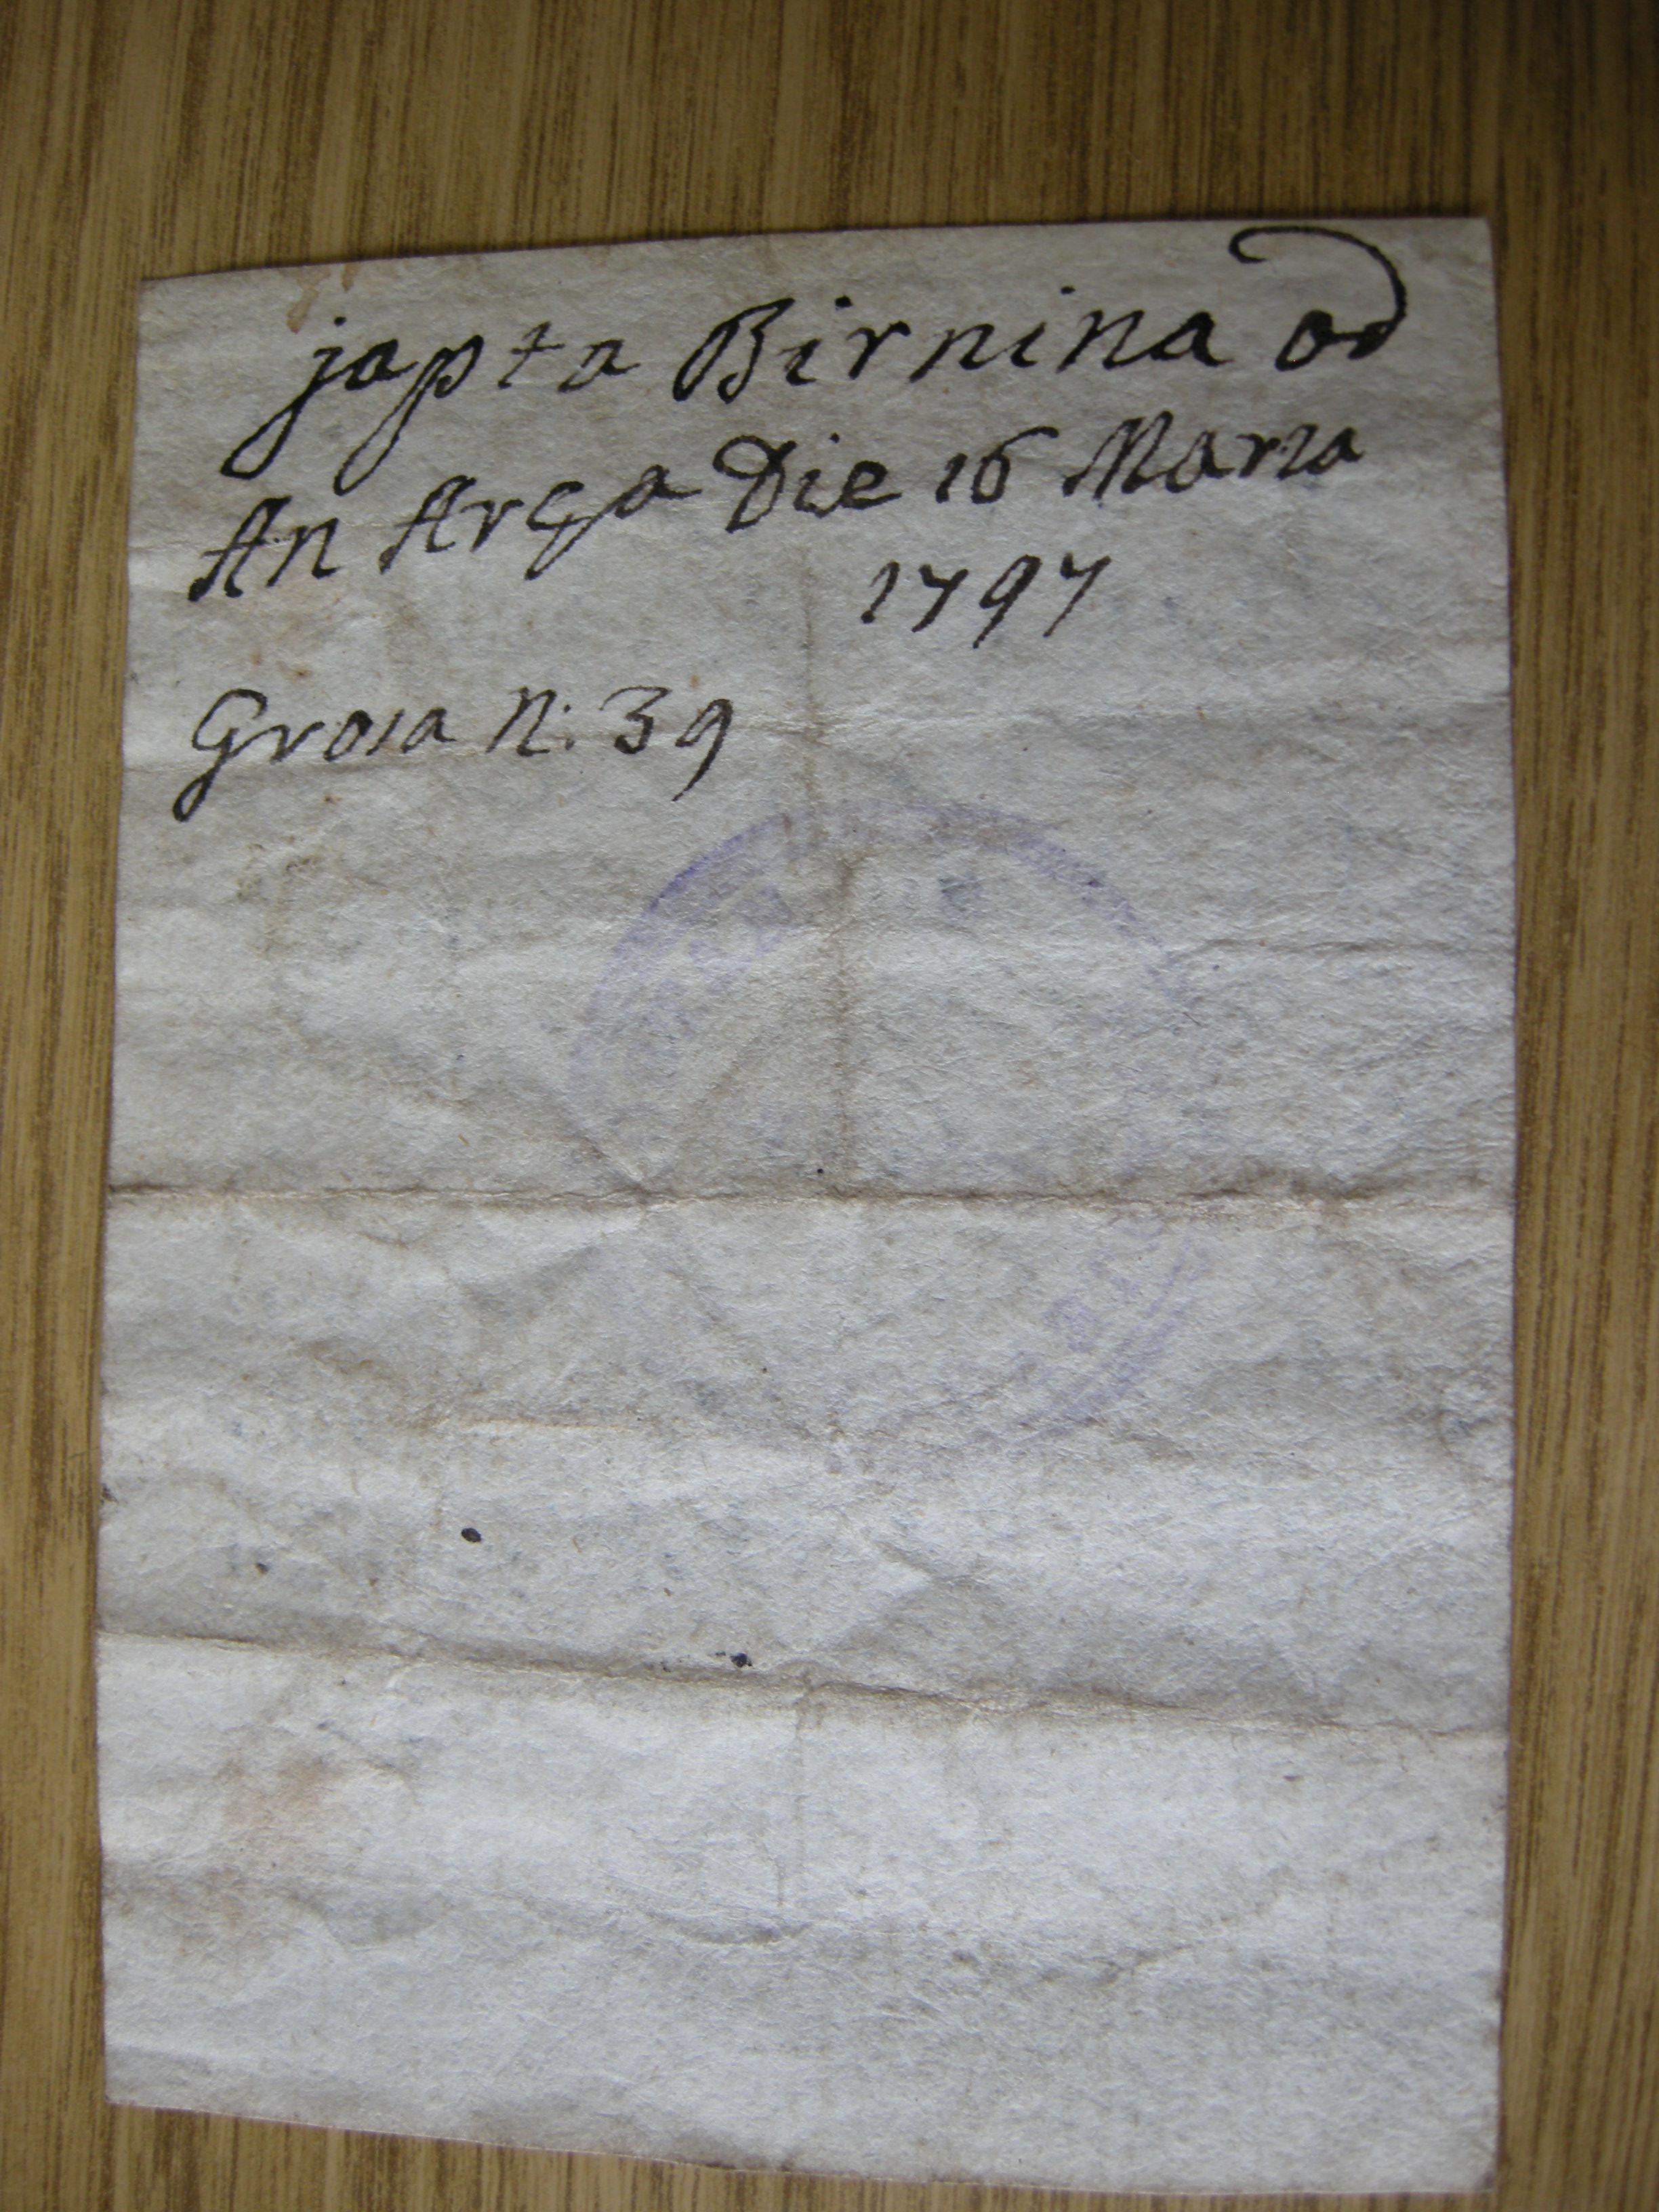 japta Birnina od
An Arga Die 16 Marza
1797
Grosa N: 39